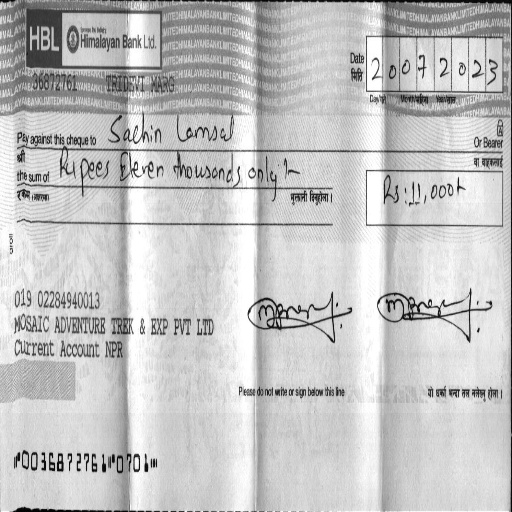 HBL Himalayan Bank Ltd.
36872761 TRIDEVI MARG
Date
मिति
20072023
Pay against this cheque to Sachin Lamsal
Or Bearer
श्री
वा वाहकलाई
the sum of Rupees Eleven thousands only /-
Rs: 11,000/-
भुक्तानी दिनुहोला ।
019 02284940013
MOSAIC ADVENTURE TREK & EXP PVT LTD
Current Account NPR
Please do not write or sign below this line
⑈0036872761⑈0701⑈